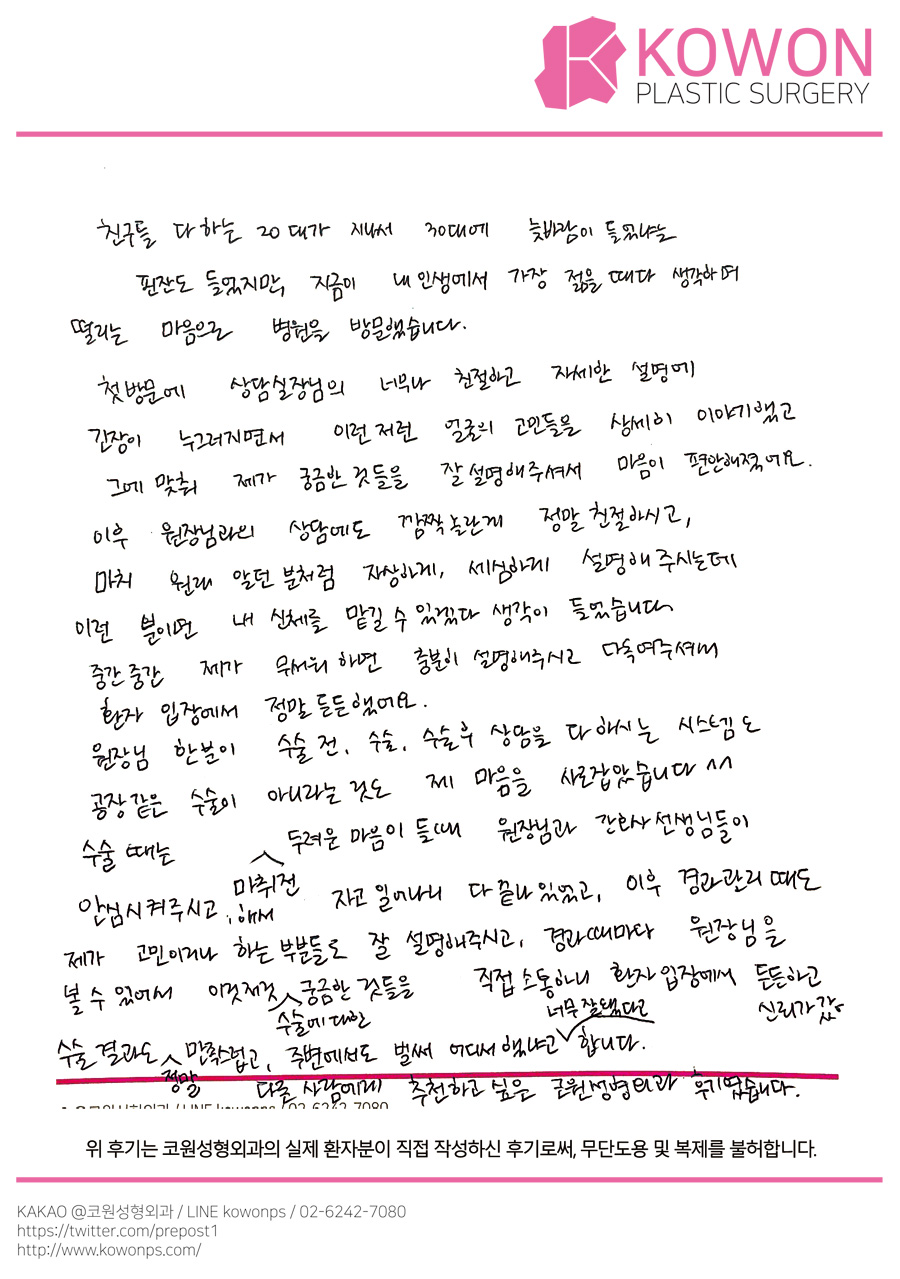 KOWON
PLASTIC SURGERY
친구들 다 하는 20대가 지나서 30대에 헛바람이 들었냐는
핀잔도 들었지만, 지금이 내 인생에서 가장 젊을 때다 생각하며
떨리는 마음으로 병원을 방문했습니다.
첫 방문에 상담실장님의 너무나 친절하고 자세한 설명에
긴장이 누그러지면서 이런저런 얼굴의 고민들을 상세히 이야기했고
그에 맞춰 제가 궁금한 것들을 잘 설명해주셔서 마음이 편안해졌어요.
이후 원장님과의 상담에도 깜짝 놀란게 정말 친절하시고,
마치 원래 알던 분처럼 자상하게, 세심하게 설명해 주시는데
이런 분이면 내 신체를 맡길 수 있겠다 생각이 들었습니다
중간중간 제가 무서워 하면 충분히 설명해주시고 다독여주셔서
환자 입장에서 정말 든든했어요.
원장님 한분이 수술 전, 수술, 수술후 상담을 다 하시는 시스템도
공장같은 수술이 아니라는 것도 제 마음을 사로잡았습니다 ^^
수술 때는 두려운 마음이 들때 원장님과 간호사 선생님들이
안심시켜주시고, 마취전 해서 자고 일어나니 다 끝나 있었고, 이후 경과관리 때도
제가 고민이거나 하는 부분들도 잘 설명해주시고, 경과때마다 원장님을
볼 수 있어서 이것저것 수술에 대한 궁금한 것들을 직접 소통하니 환자 입장에서 든든하고 신뢰가 갔
수술 결과도 정말 만족스럽고, 주변에서도 벌써 어디서 했냐고 너무 잘됐다고 합니다.
다른 사람에게 추천하고 싶은 코원성형외과 후기였습니다.
위 후기는 코원성형외과의 실제 환자분이 직접 작성하신 후기로써, 무단도용 및 복제를 불허합니다.
KAKAO @코원성형외과 / LINE kowonps / 02-6242-7080
https://twitter.com/prepost1
http://www.kowonps.com/